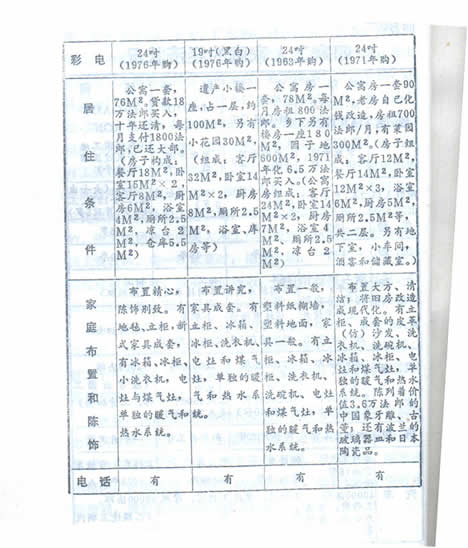 彩电 24吋 19吋(黑白) 24吋 24吋
(1976年购) (1976年购) (1963年购) (1971年购)
居住条件
公寓一套,
76M²,贷款18
万法郎买入,
十年还清,每
月支付1800法
郎,已还大部,
(房子构成:
客厅18M²,卧
室15M²×2,
客厅8M²,厨
房6M²,浴室
4M²,厕所2.5
M²,凉台2
M²,仓库5.5
M²)
遗产小楼一
座,占一层,约
100M²,另有
小花园30M²,
(组成:客厅
32M²,卧室14
M²×2,厨房
8M²,厕所2.5
M²,浴室、库
房等)
公寓房一
套,78M²。每
月房租800法
郎。乡下另有
楼房一座180
M²,园子地
600M²,1971
年化6.5万法
郎买入。(公寓
房组成:客厅
24M²,卧室14
M²×2,厨房
7M²,浴室4
M²,厕所2.5
M²,凉台2
M²)
公寓房一套90
M²,老房自己化
钱改造,房租700
法郎/月,有菜园
300M²。(房子组
成:客厅12M²,
餐厅14M²,卧室
12M²×3,浴室
6M²,厨房5M²,
厕所2.5M²等,
共二层。另有地
下室,小车间,
酒窖和储藏室。)
家庭布置和陈饰
布置精心,
陈饰别致。有
地毯、立柜、新
式家具成套,
有冰箱、冰柜、
小洗衣机、电
灶与煤气灶,
单独的暖气和
热水系统。
布置讲究,
家具成套。有
立柜、冰箱、
冰柜、洗衣机、
电灶和煤气
灶,单独的暖
气和热水系
统。
布置一般,
塑料纸糊墙,
塑料地面,家
具一般。有立
柜、冰箱、冰
柜、洗衣机、
洗碗机、电灶
和煤气灶,单
独的暖气和热
水系统。
布置大方、清
洁;将旧房改造
成现代化。有立
柜、成套的皮革
(仿)沙发、洗
衣机、洗碗机、电
冰箱、冰柜、电灶
和煤气灶,单
独的暖气和热水
系统。陈列着价
值3.6万法郎的
中国象牙雕、古
董;还有波兰的
玻璃器皿和日本
陶瓷品。
电话 有 有 有 有